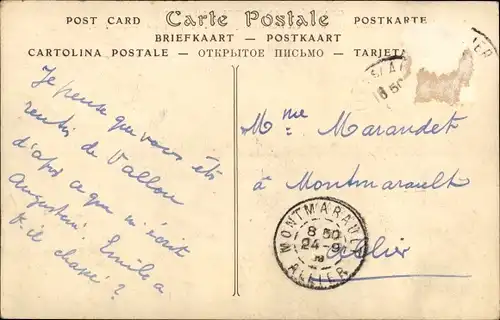 POST CARD Carte Postale POSTKARTE
BRIEFKAART — POSTKAART
CARTOLINA POSTALE — ОТКРЫТОЕ ПИСЬМО — TARJETA
Je pense que vous êts
rentré de Vallon
d'après ce que m'écrit
Augustin. Emile a
t-il chassé ?
Mme Marandet
à Montmarault
Allier
MONTMARAULT
8 50
24-9
ALLIER